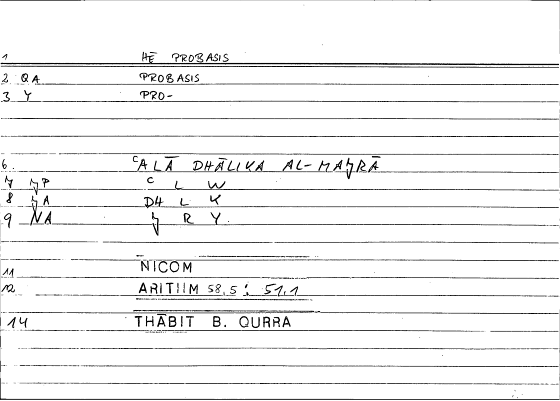 1 HĒ PROBASIS
2 QA PROBASIS
3 Y PRO-
6. ʿALĀ DHĀLIKA AL-MAϞRĀ
7 ϞP ʿ L W
8 ϞA DH L K
9 NA Ϟ R Y
11 NICOM
12 ARITIIM 58,5 : 51,1
14 THĀBIT B. QURRA